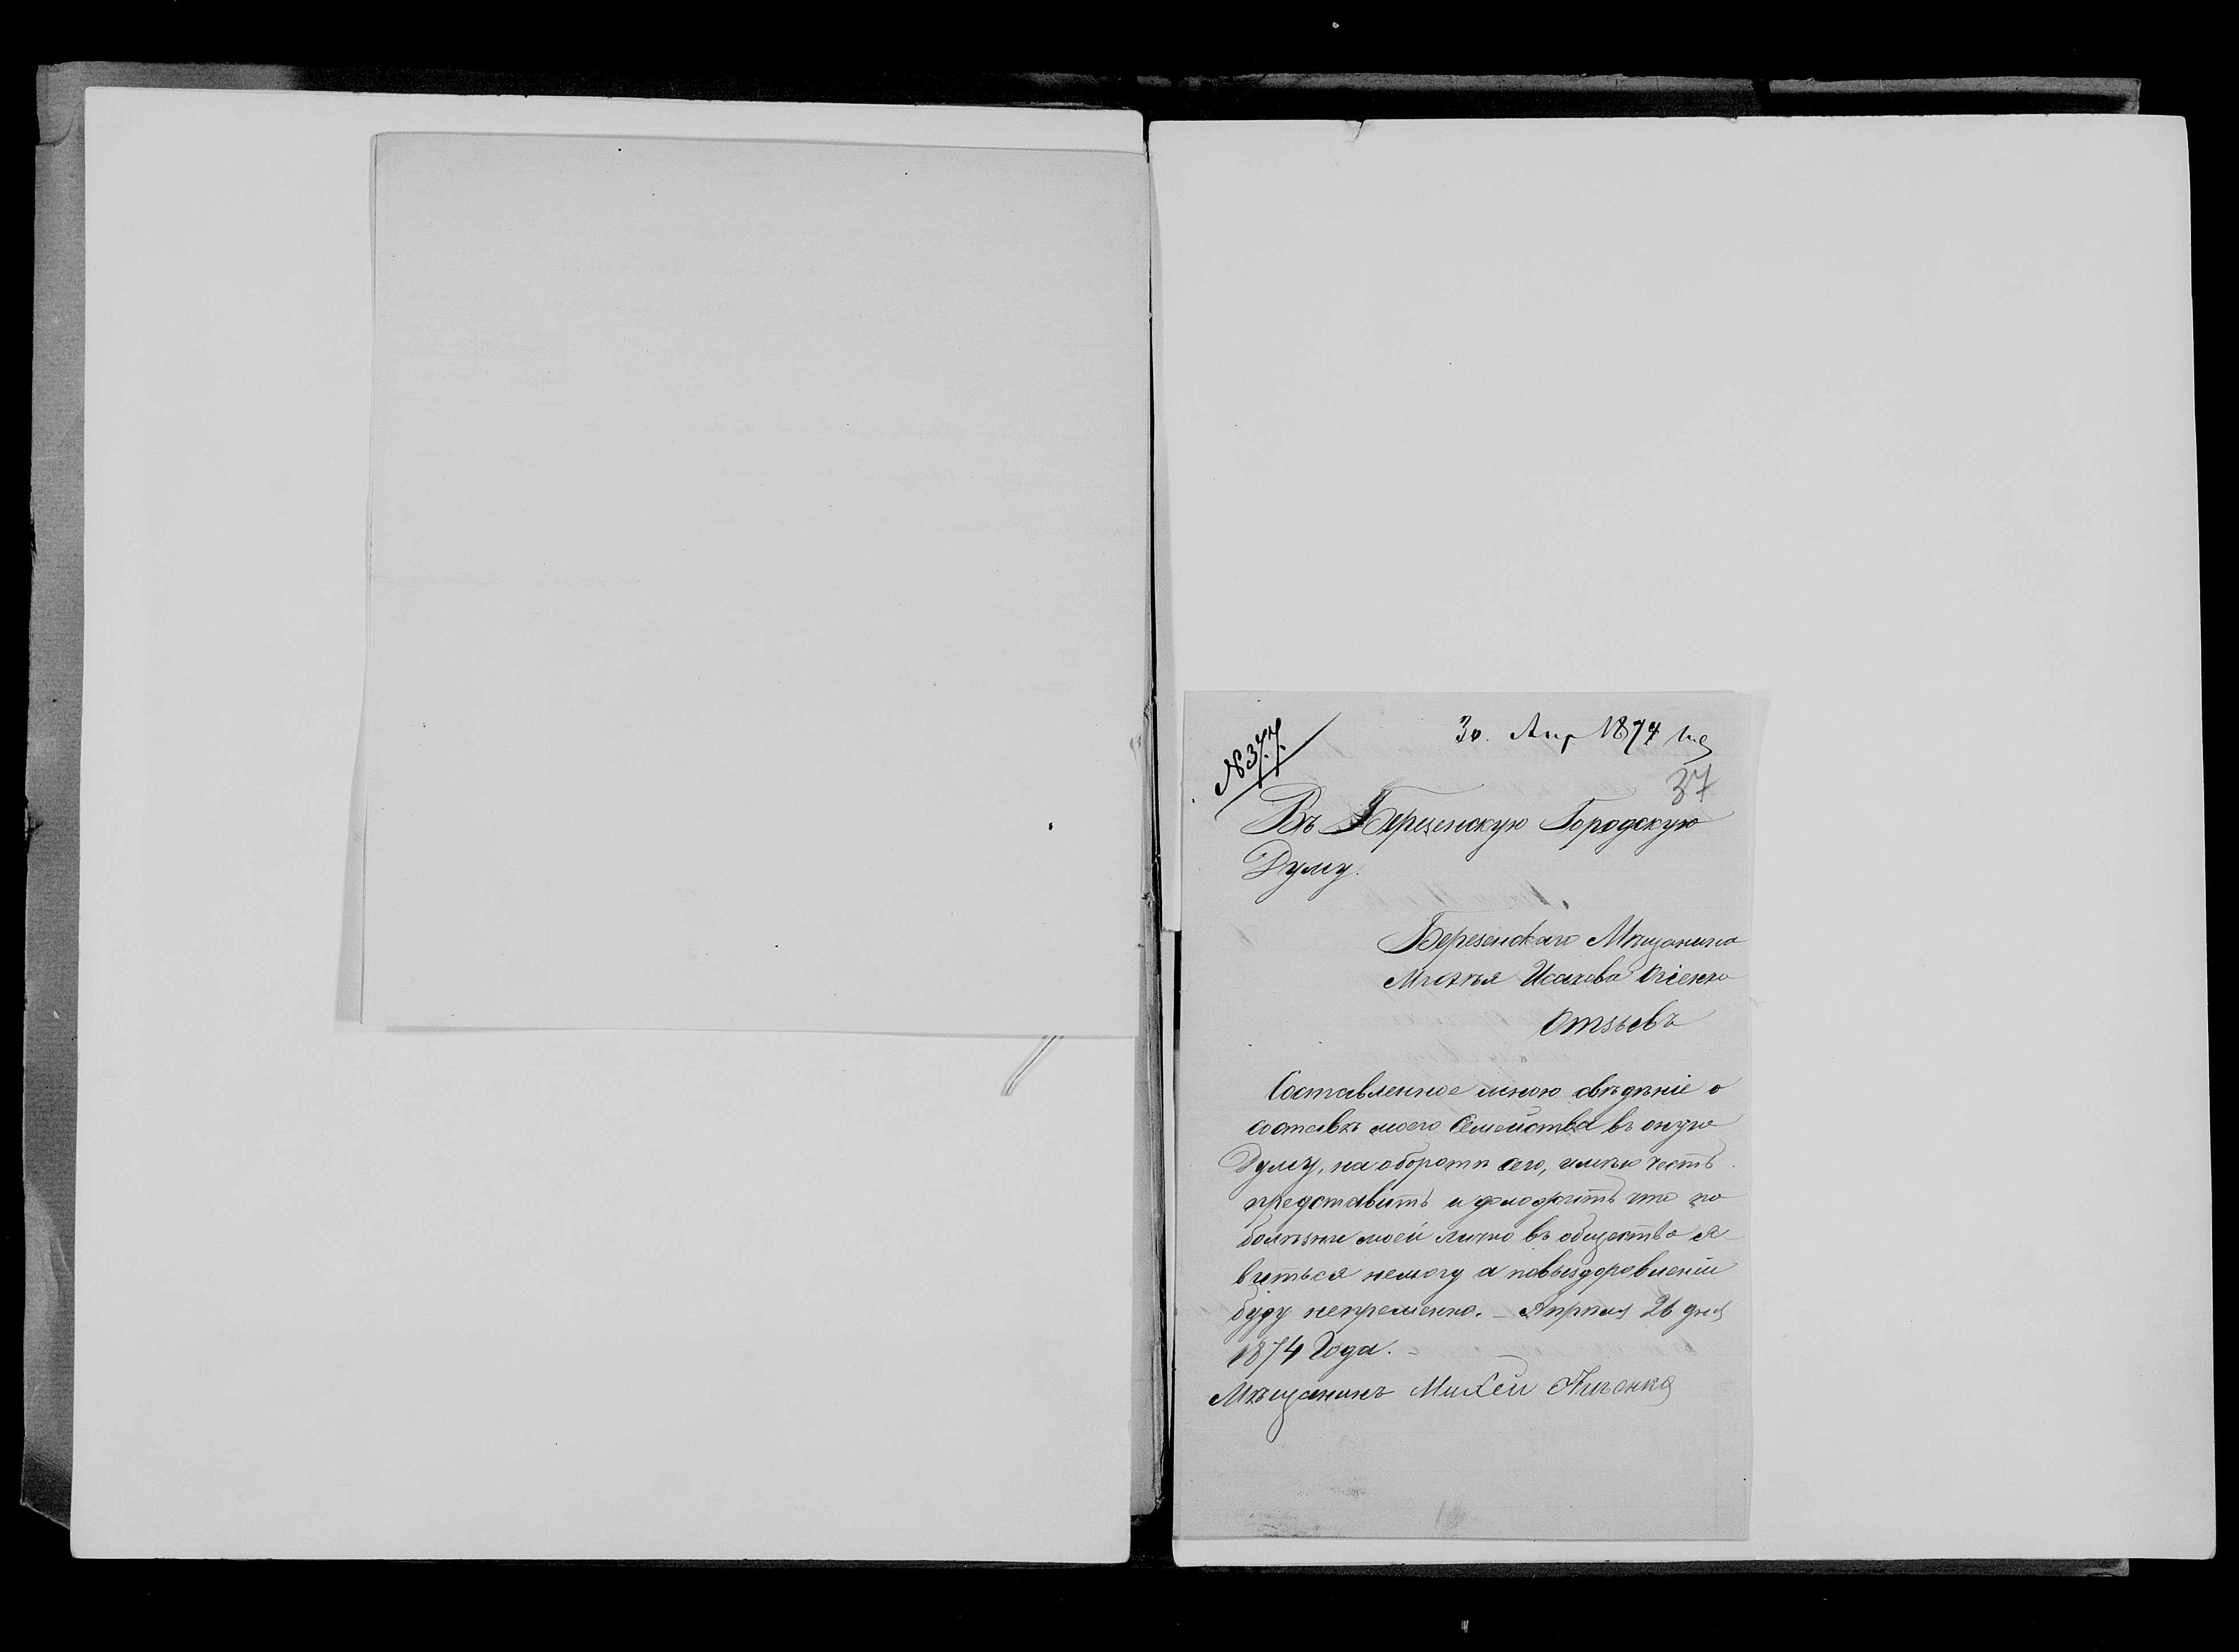 № 377.
30. Апр 1874
37
Въ Березенскую Городскую
Думу.
Березенскаго Мѣщанина
Михѣя Исакова
Отзывъ
Составленное мною свѣдѣніе о
составѣ моего Семейства въ оную
Думу, на оборотѣ сего, имѣю честь
представить и что по
болѣзни моей лично въ общество я
виться немогу а повыздоровленіи
буду непременно. – Апрѣля 26 дня
1874 Года. –
Мѣщанинъ Михей